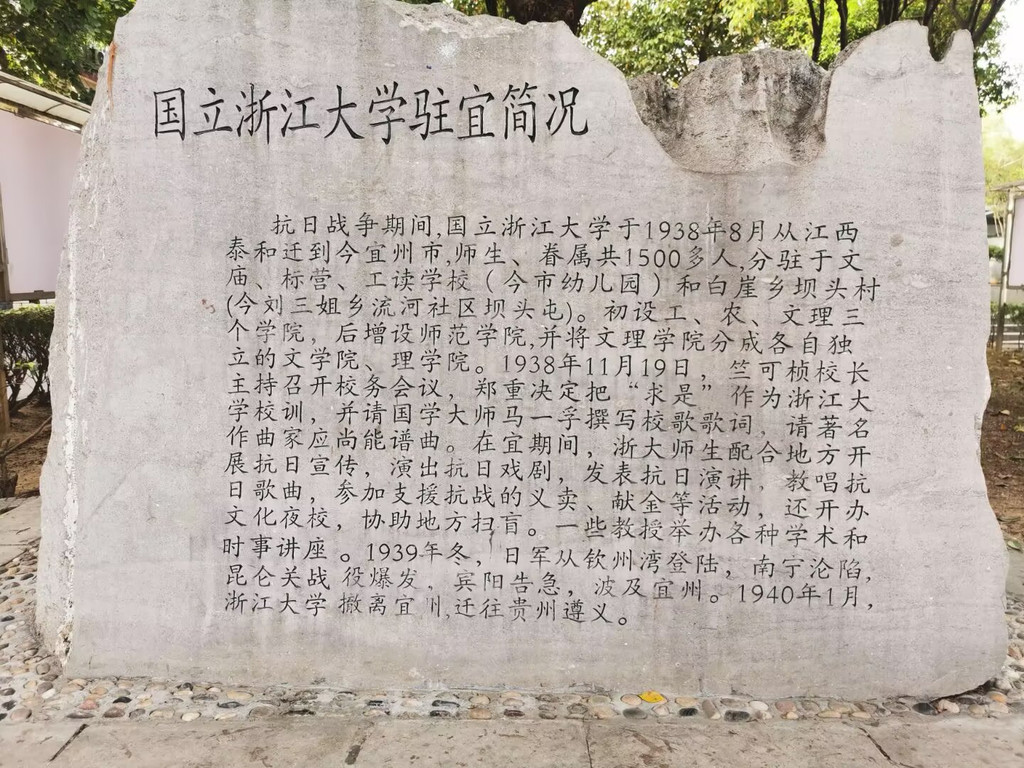 国立浙江大学驻宜简况
抗日战争期间,国立浙江大学于1938年8月从江西
泰和迁到今宜州市,师生、眷属共1500多人,分驻于文
庙、标营、工读学校（今市幼儿园）和白崖乡坝头村
(今刘三姐乡流河社区坝头屯)。初设工、农、文理三
个学院，后增设师范学院,并将文理学院分成各自独
立的文学院、理学院。1938年11月19日，竺可桢校长
主持召开校务会议，郑重决定把“求是”作为浙江大
学校训，并请国学大师马一孚撰写校歌歌词，请著名
作曲家应尚能谱曲。在宜期间，浙大师生配合地方开
展抗日宣传，演出抗日戏剧，发表抗日演讲，教唱抗
日歌曲，参加支援抗战的义卖、献金等活动，还开办
文化夜校，协助地方扫盲。一些教授举办各种学术和
时事讲座。1939年冬，日军从钦州湾登陆，南宁沦陷，
昆仑关战役爆发，宾阳告急，波及宜州。1940年1月，
浙江大学撤离宜州,迁往贵州遵义。